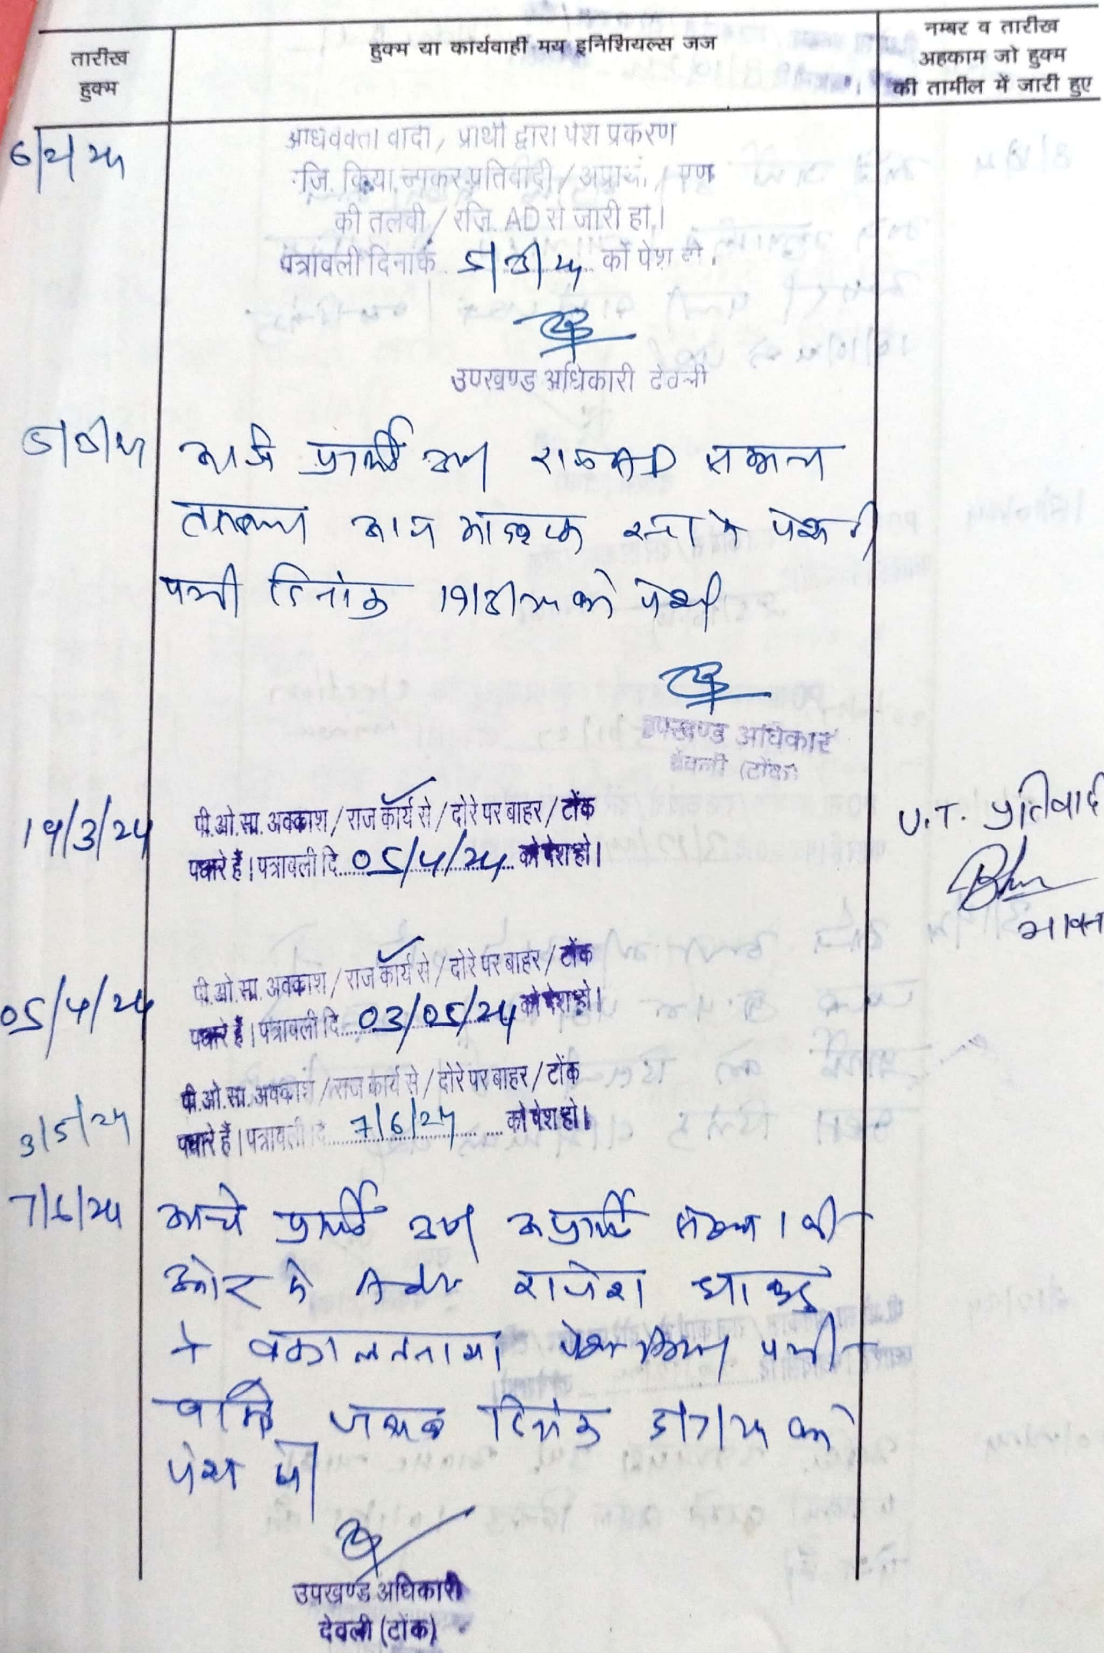 तारीख
हुक्म
हुक्म या कार्यवाही मय इनिशियल्स जज
नम्बर व तारीख
अहकाम जो हुक्म
की तामील में जारी हुए
6/2/24
अधिवक्ता वादी / प्रार्थी द्वारा पेश प्रकरण
रजि. किया जाकर प्रतिवादी / अप्रार्थी गण
की तलवी / रजि. AD से जारी हो।
पत्रावली दिनांक 5/3/24 को पेश हो।
उपखण्ड अधिकारी देवली
5/3/24
प्रार्थी AD
पत्रा दिनांक 19/3/24 को पेश हो
उपखण्ड अधिकारी
देवली (टोंक)
19/3/24
पी.ओ.सा. अवकाश / राज कार्य से / दौरे पर बाहर / टोंक
पधारे हैं। पत्रावली दि. 05/4/24 को पेश हो।
U.T. प्रतिवादी
05/4/24
पी.ओ.सा. अवकाश / राज कार्य से / दौरे पर बाहर / टोंक
पधारे हैं। पत्रावली दि. 03/05/24 को पेश हो।
3/5/24
पी.ओ.सा. अवकाश / राज कार्य से / दौरे पर बाहर / टोंक
पधारे हैं। पत्रावली दि. 7/6/24 को पेश हो।
7/6/24
प्रार्थी अप्रार्थी संख्या 1 की
ओर से Adv राजेश
ने वकालतनामा पेश किया पत्रा
वास्ते जवाब दिनांक 5/7/24 को
पेश हो
उपखण्ड अधिकारी
देवली (टोंक)